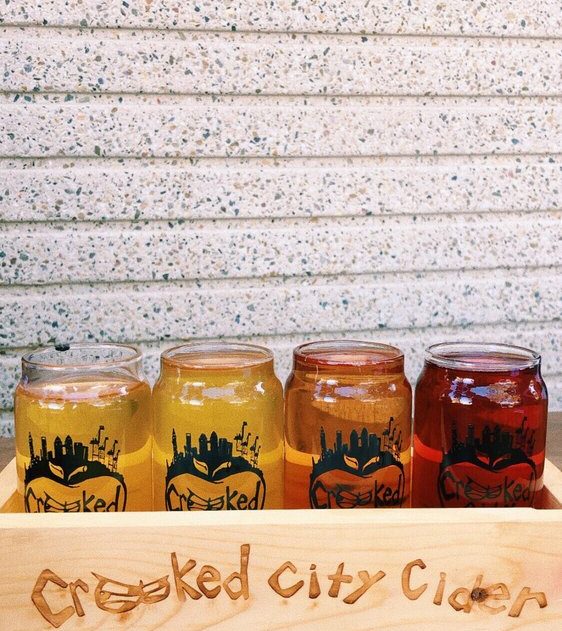 Crooked
Crooked
Crooked
Crooked
Crooked City Cider